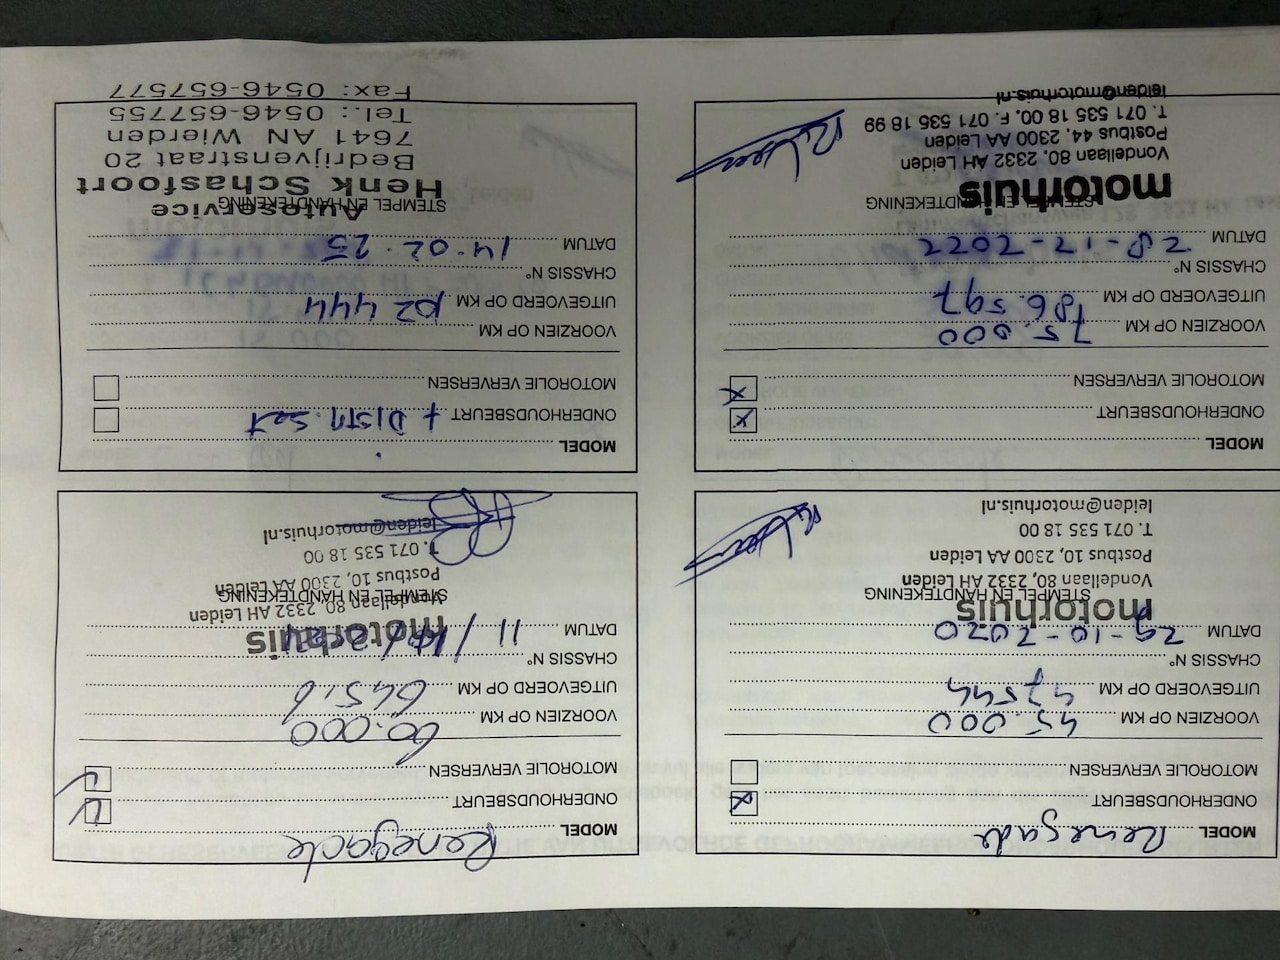 MODEL Renegade
ONDERHOUDSBEURT x
MOTOROLIE VERVERSEN
VOORZIEN OP KM 45.000
UITGEVOERD OP KM 47544
CHASSIS N°
DATUM 29-10-2020
motorhuis
STEMPEL EN HANDTEKENING
Vondellaan 80, 2332 AH Leiden
Postbus 10, 2300 AA Leiden
T. 071 535 18 00
leiden@motorhuis.nl
MODEL Renegade
ONDERHOUDSBEURT
MOTOROLIE VERVERSEN
VOORZIEN OP KM 60.000
UITGEVOERD OP KM
CHASSIS N°
DATUM 11/
motorhuis
STEMPEL EN HANDTEKENING
Vondellaan 80, 2332 AH Leiden
Postbus 10, 2300 AA Leiden
T. 071 535 18 00
leiden@motorhuis.nl
MODEL
ONDERHOUDSBEURT x
MOTOROLIE VERVERSEN x
VOORZIEN OP KM 75.000
UITGEVOERD OP KM 86.597
CHASSIS N°
DATUM 28-12-2022
STEMPEL EN HANDTEKENING
motorhuis
Vondellaan 80, 2332 AH Leiden
Postbus 44, 2300 AA Leiden
T. 071 535 18 00, F. 071 535 18 99
leiden@motorhuis.nl
MODEL
ONDERHOUDSBEURT + DISTR. Set
MOTOROLIE VERVERSEN
VOORZIEN OP KM
UITGEVOERD OP KM
CHASSIS N°
DATUM 14.02.25
STEMPEL EN HANDTEKENING
Autoservice
Henk Schasfoort
Bedrijvenstraat 20
7641 AN Wierden
Tel.: 0546-657755
Fax: 0546-657577